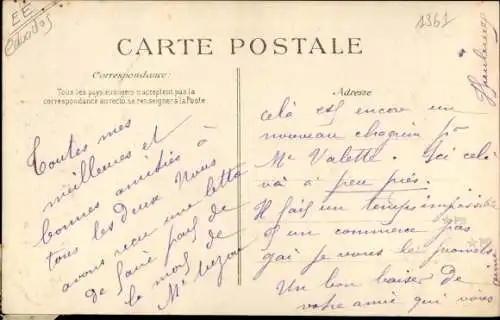 EE
Calvados
1361
CARTE POSTALE
Correspondance:
Tous les pays étrangers n'acceptent pas la
correspondance au recto, se renseigner à la Poste
Toutes mes
meilleures et
bonnes amitiés à
tous les deux Nous
avons reçu une lettre
de faire part de
la mort de
Me
Adresse
celà est encore un
nouveau chagrin pr
Me Valette. Ici celà
và à peu près.
Il fait un temps impossible
et un commerce pas
gai je vous le promets
Un bon baiser de
votre amie qui vous
aime